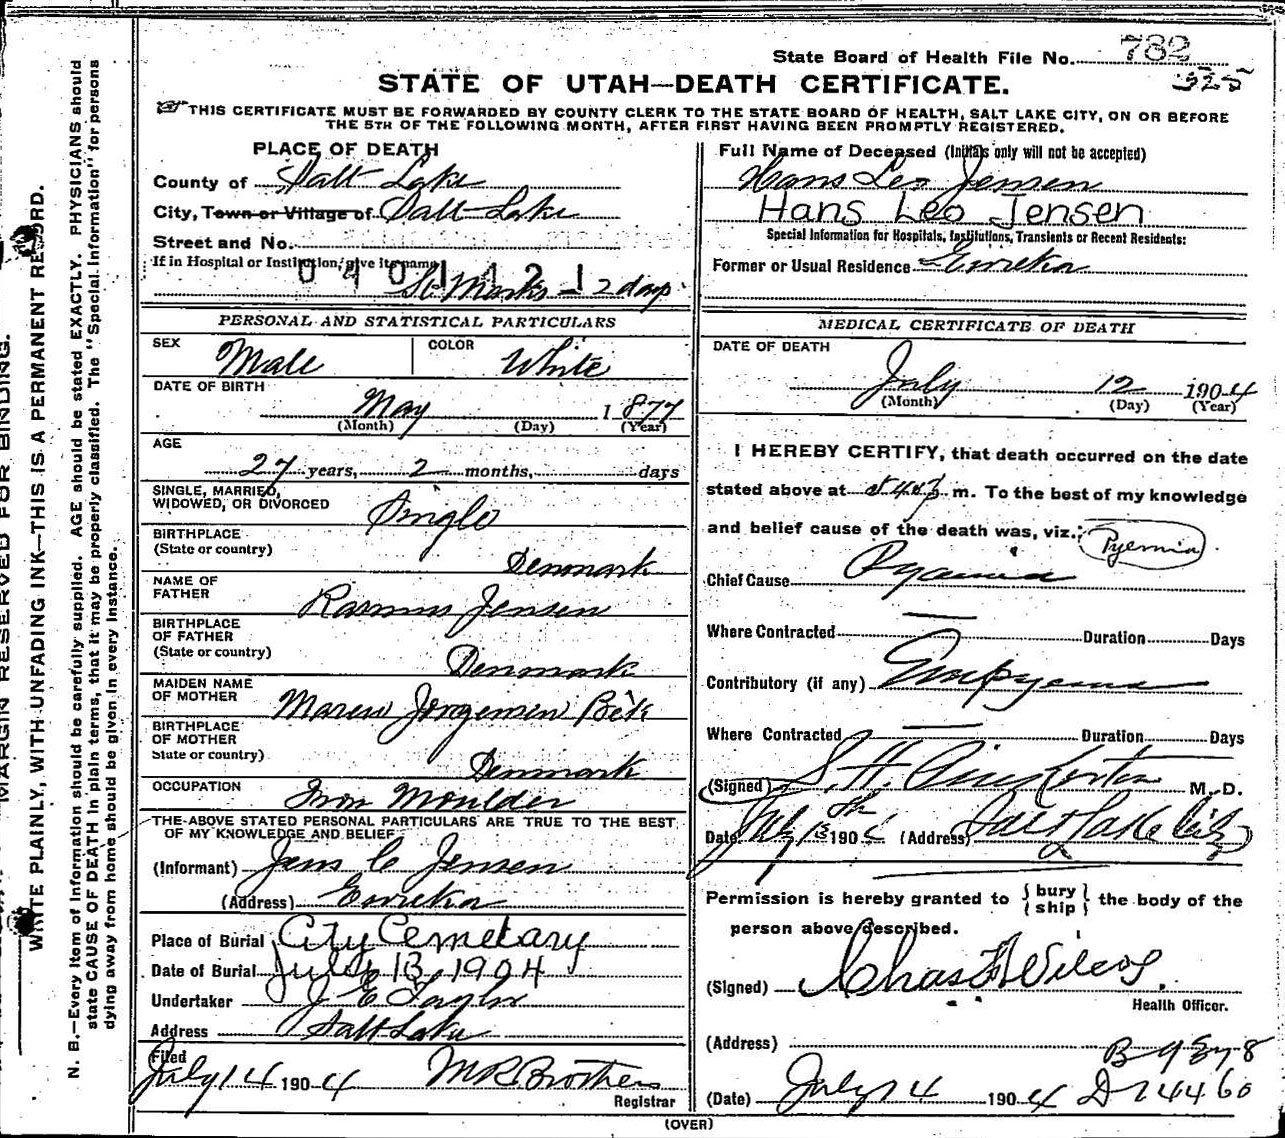 State Board of Health File No. 782
525
STATE OF UTAH—DEATH CERTIFICATE.
THIS CERTIFICATE MUST BE FORWARDED BY COUNTY CLERK TO THE STATE BOARD OF HEALTH, SALT LAKE CITY, ON OR BEFORE
THE 5TH OF THE FOLLOWING MONTH, AFTER FIRST HAVING BEEN PROMPTLY REGISTERED.
PLACE OF DEATH
County of Salt Lake
City, Town or Village of Salt Lake
Street and No.
If in Hospital or Institution, give its name
0401421
St Marks - 12 days
PERSONAL AND STATISTICAL PARTICULARS
SEX Male COLOR White
DATE OF BIRTH
May 1877
(Month) (Day) (Year)
AGE
27 years, 2 months, days
SINGLE, MARRIED,
WIDOWED, OR DIVORCED Single
BIRTHPLACE
(State or country) Denmark
NAME OF
FATHER Rasmus Jensen
BIRTHPLACE
OF FATHER
(State or country) Denmark
MAIDEN NAME
OF MOTHER Jorgensen
BIRTHPLACE
OF MOTHER
State or country) Denmark
OCCUPATION Iron Moulder
THE ABOVE STATED PERSONAL PARTICULARS ARE TRUE TO THE BEST
OF MY KNOWLEDGE AND BELIEF
(Informant) Jens C Jensen
(Address) Eureka
Place of Burial City Cemetary
Date of Burial July 13, 1904
Undertaker J E Taylor
Address Salt Lake
Filed
July 14 1904 M R Brothers
Registrar
Full Name of Deceased (Initials only will not be accepted)
Hans Leo Jensen
Hans Leo Jensen
Special Information for Hospitals, Institutions, Transients or Recent Residents:
Former or Usual Residence Eureka
MEDICAL CERTIFICATE OF DEATH
DATE OF DEATH
July 12 1904
(Month) (Day) (Year)
I HEREBY CERTIFY, that death occurred on the date
stated above at m. To the best of my knowledge
and belief cause of the death was, viz.: Pyemia
Chief Cause Pyaemia
Where Contracted Duration Days
Contributory (if any) Empyema
Where Contracted Duration Days
(Signed) S. H. Pinkerton M. D.
Date July 13th 1904 (Address) Salt Lake City
Permission is hereby granted to { bury } the body of the
{ ship }
person above described.
(Signed) Chas F Wilcox.
Health Officer.
(Address)
(Date) July 14 1904
(OVER)
MARGIN RESERVED FOR BINDING.
WRITE PLAINLY, WITH UNFADING INK—THIS IS A PERMANENT RECORD.
N. B.—Every item of information should be carefully supplied. AGE should be stated EXACTLY. PHYSICIANS should
state CAUSE OF DEATH in plain terms, that it may be properly classified. The "Special Information" for persons
dying away from home should be given in every instance.